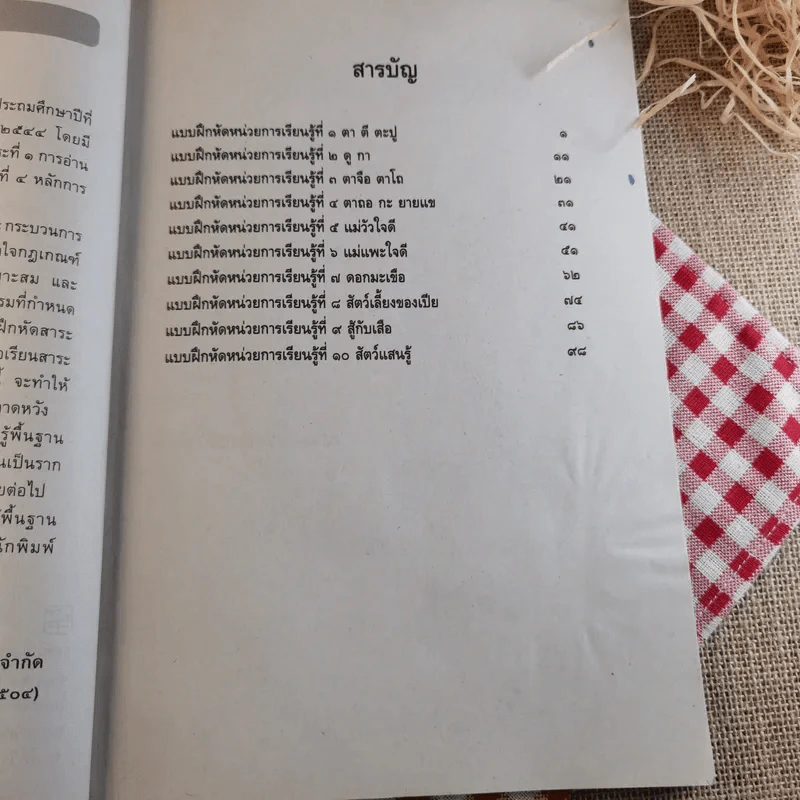 ประถมศึกษาปีที่
๒๕๔๔ โดยมี
ระที่ ๑ การอ่าน
ที่ ๔ หลักการ
กระบวนการ
ใจกฎเกณฑ์
าะสม และ
รมที่กำหนด
ฝึกหัดสาระ
เรียนสาระ
จะทำให้
าดหวัง
รู้พื้นฐาน
นเป็นราก
ยต่อไป
พื้นฐาน
นักพิมพ์
จำกัด
๕๐๔)
สารบัญ
แบบฝึกหัดหน่วยการเรียนรู้ที่ ๑ ตา ตี ตะปู ๑
แบบฝึกหัดหน่วยการเรียนรู้ที่ ๒ ดู กา ๑๑
แบบฝึกหัดหน่วยการเรียนรู้ที่ ๓ ตาจือ ตาโถ ๒๑
แบบฝึกหัดหน่วยการเรียนรู้ที่ ๔ ตาถอ กะ ยายแข ๓๑
แบบฝึกหัดหน่วยการเรียนรู้ที่ ๕ แม่วัวใจดี ๔๑
แบบฝึกหัดหน่วยการเรียนรู้ที่ ๖ แม่แพะใจดี ๕๑
แบบฝึกหัดหน่วยการเรียนรู้ที่ ๗ ดอกมะเขือ ๖๒
แบบฝึกหัดหน่วยการเรียนรู้ที่ ๘ สัตว์เลี้ยงของเปีย ๗๔
แบบฝึกหัดหน่วยการเรียนรู้ที่ ๙ สู้กับเสือ ๘๖
แบบฝึกหัดหน่วยการเรียนรู้ที่ ๑๐ สัตว์แสนรู้ ๙๘